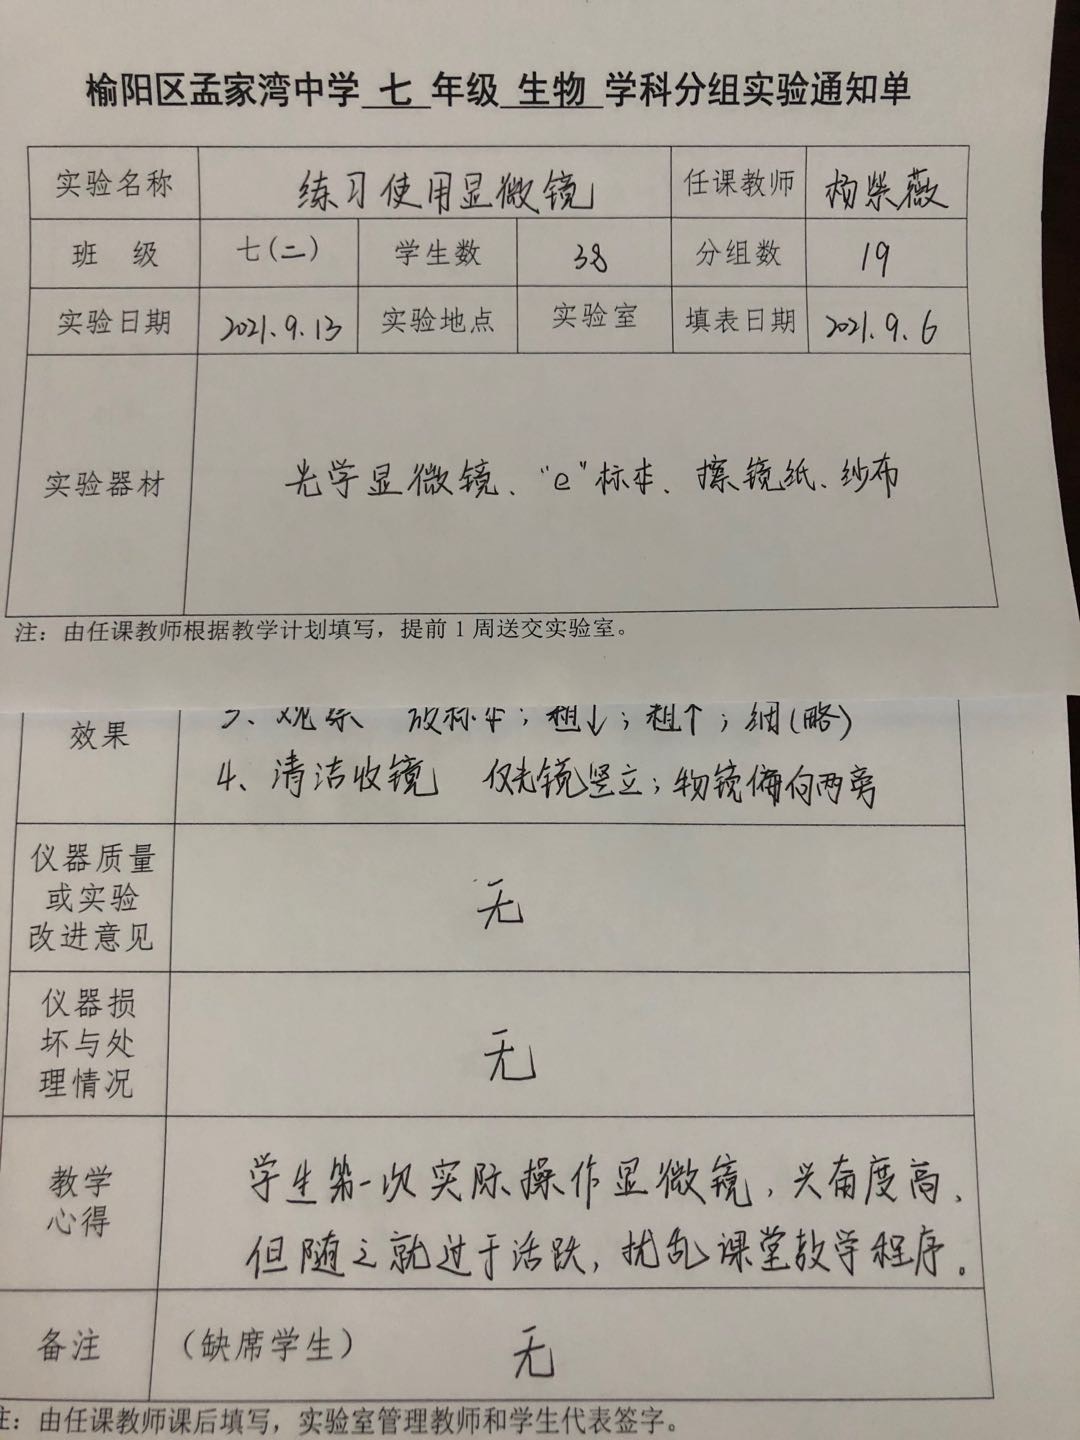 榆阳区孟家湾中学 七 年级 生物 学科分组实验通知单
实验名称 练习使用显微镜 任课教师 杨紫薇
班 级 七(二) 学生数 38 分组数 19
实验日期 2021.9.13 实验地点 实验室 填表日期 2021.9.6
实验器材 光学显微镜、"e"标本、擦镜纸、纱布
注：由任课教师根据教学计划填写，提前1周送交实验室。
3、观察 放标本；粗↓；粗↑；细(略)
效果
4、清洁收镜 使镜竖立；物镜偏向两旁
仪器质量
或实验
改进意见
无
仪器损
坏与处
理情况
无
教学
心得
学生第一次实际操作显微镜，兴奋度高、
但随之就过于活跃，扰乱课堂教学程序。
备注 （缺席学生） 无
注：由任课教师课后填写，实验室管理教师和学生代表签字。